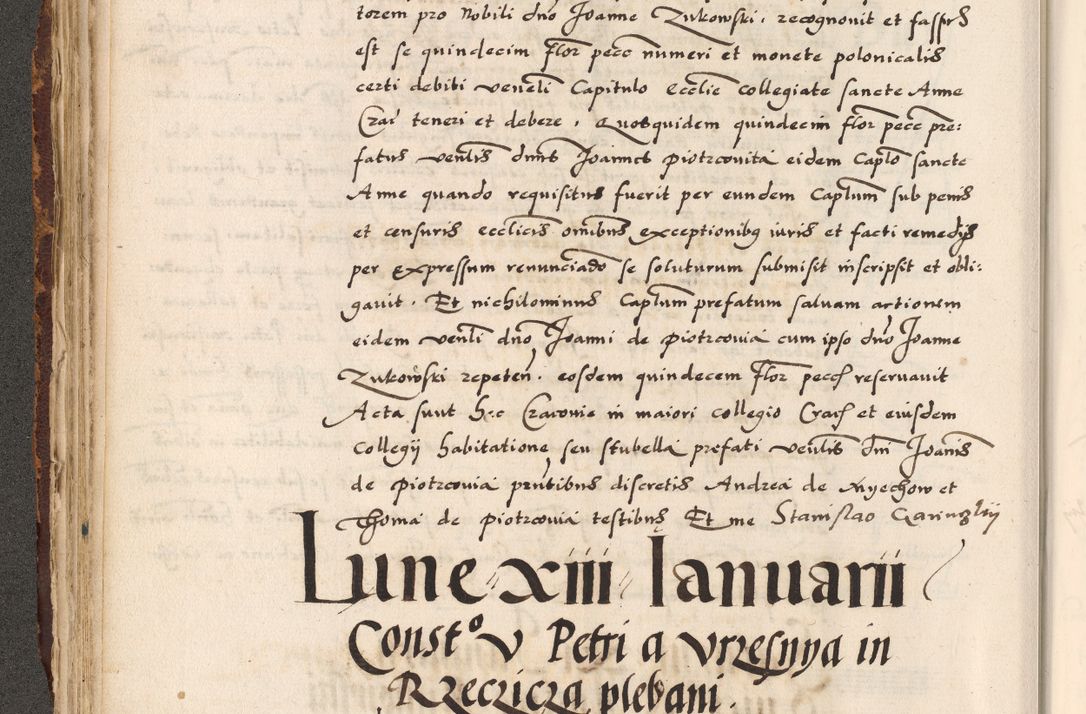 torem pro Nobili dno Joanne Zukowski, recognovit et fassus
est se quindecim flor pecc numeri et monete polonicalis
certi debiti venli Capitulo Ecclie collegiate sancte Anne
Crac teneri et debere, Quosquidem quindecim flor pecc pre:
fatus venlis dnus Joannes Piotrcovita eidem Caplo sancte
Anne quando requisitus fuerit per eundem Caplum sub penis
et censuris ecclicis omibus exceptionibq iuris et facti remedijs
per expressum renunciado se soluturum submisit inscripsit et obli:
gauit. Et nichilominus Caplum prefatum saluam actionem
eidem venli dno Joanni de Piotrcovia cum ipso dno Joanne
Zukowski repeten. eosdem quindecem flor pecc reservauit
Acta sunt hec Cracovie in maiori collegio Crac et eiusdem
Collegij habitatione seu stubella prefati venlis dni Joanis
de Piotrcovia pntibus discretis Andrea de Myechow et
Thoma de Piotrcovia testibus Et me Stanislao
Lune xiii Ianuarii
Const° v Petri a Vrzesnya in
Rzeczicza plebani.